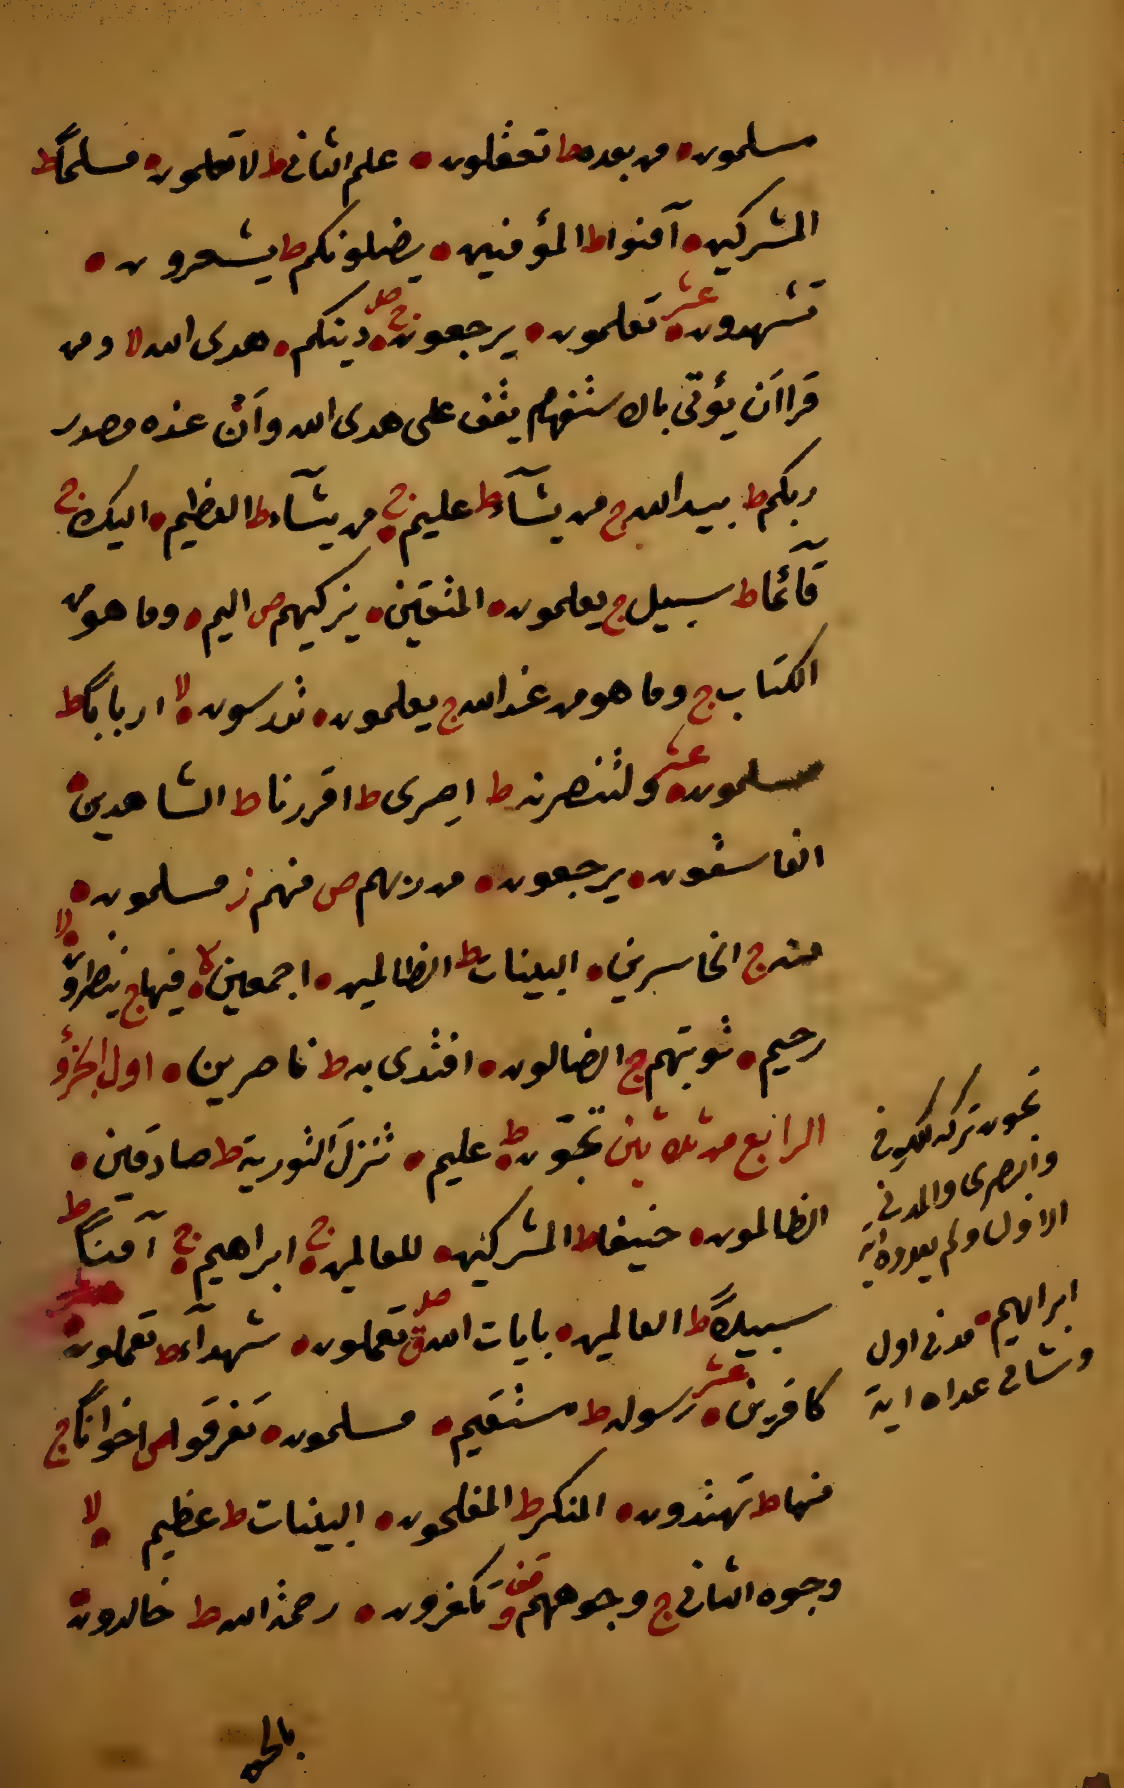 مسلمون • من بعده ط تعقلون • علم الثاني ط لا تعلمون • مسلمًا ط
المشركين • آمنوا ط المؤمنين • يضلونكم ط يشعرون •
تشهدون • عشر تعلمون • يرجعون • ج صلى دينكم • هدى الله لا ومن
قرا اَن يؤتى بالاستفهام يقف على هدى الله واَنْ عنده مصدر
ربكم ط بيد الله ج من يشآء ط عليم • ج من يشآء ط العظيم • اليك ج
قآئما ط سبيل ج يعلمون • المتقين • يزكيهم ص اليم • وما هو من
الكتاب ج وما هو من عند الله ج يعلمون • تدرسون • لا اربابًا ط
مسلمون • عشر ولتنصرنه ط اصرى ط اقررنا ط الشاهدين •
الفاسقون • يرجعون • من ربهم ص منهم ز مسلمون •
منه ج الخاسرين • البينات ط الظالمين • اجمعين • لا فيها ج ينظرون • لا
رحيم • توبتهم ج الضالون • افتدى به ط ناصرين • اول الجزؤ
الرابع من ثلاثين تحبون • ط عليم • تنزل التورية ط صادقين •
الظالمون • حنيفا ط المشركين • للعالمين • ج ابراهيم • ج آمنًا ط
سبيلاً ط العالمين • بايات الله ق صلى تعملون • شهدآء ط تعملون • عشر
كافرين • عشر رسوله ط مستقيم • مسلمون • تفرقوا ص اخوانًا ج
منها ط تهتدون • المنكر ط المفلحون • البينات ط عظيم • لا
وجوه الثاني ج وجوههم قف تكفرون • رحمة الله ط خالدون •
بالحق
تحبون تركه الكوفي
والبصرى والمدني
الاول ولم يعدوه اية
ابراهيم • مدني اول
وشامي عداه اية